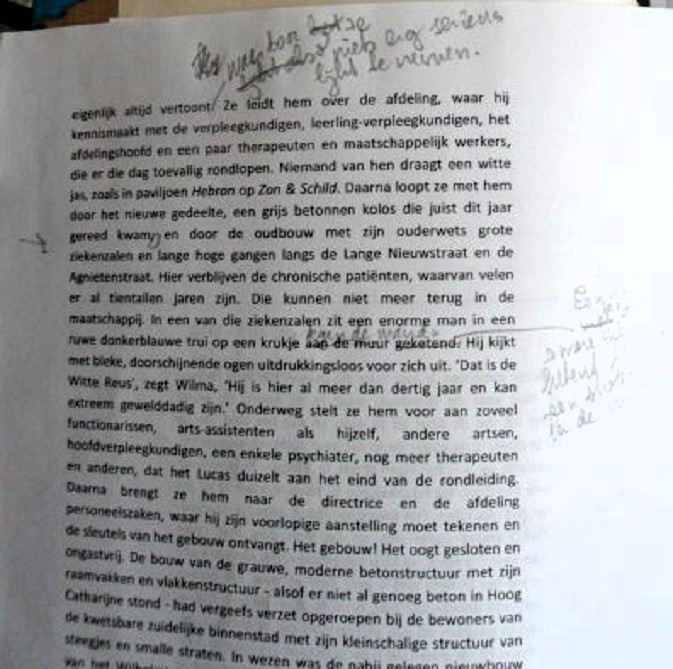 niet erg serieus
lijkt te nemen.
eigenlijk altijd vertoont. Ze leidt hem over de afdeling, waar hij
kennismaakt met de verpleegkundigen, leerling-verpleegkundigen, het
afdelingshoofd en een paar therapeuten en maatschappelijk werkers,
die er die dag toevallig rondlopen. Niemand van hen draagt een witte
jas, zoals in paviljoen Hebron op Zon & Schild. Daarna loopt ze met hem
door het nieuwe gedeelte, een grijs betonnen kolos die juist dit jaar
gereed kwam, en door de oudbouw met zijn ouderwets grote
ziekenzalen en lange hoge gangen langs de Lange Nieuwstraat en de
Agnietenstraat. Hier verblijven de chronische patiënten, waarvan velen
er al tientallen jaren zijn. Die kunnen niet meer terug in de
maatschappij. In een van die ziekenzalen zit een enorme man in een
aan de wand
ruwe donkerblauwe trui op een krukje aan de muur geketend. Hij kijkt
met bleke, doorschijnende ogen uitdrukkingsloos voor zich uit. 'Dat is de
Witte Reus', zegt Wilma, 'Hij is hier al meer dan dertig jaar en kan
extreem gewelddadig zijn.' Onderweg stelt ze hem voor aan zoveel
functionarissen, arts-assistenten als hijzelf, andere artsen,
hoofdverpleegkundigen, een enkele psychiater, nog meer therapeuten
en anderen, dat het Lucas duizelt aan het eind van de rondleiding.
Daarna brengt ze hem naar de directrice en de afdeling
personeelszaken, waar hij zijn voorlopige aanstelling moet tekenen en
de sleutels van het gebouw ontvangt. Het gebouw! Het oogt gesloten en
ongastvrij. De bouw van de grauwe, moderne betonstructuur met zijn
raamvakken en vlakkenstructuur - alsof er niet al genoeg beton in Hoog
Catharijne stond - had vergeefs verzet opgeroepen bij de bewoners van
de kwetsbare zuidelijke binnenstad met zijn kleinschalige structuur van
steegjes en smalle straten. In wezen was de nabij gelegen nieuwbouw
van het